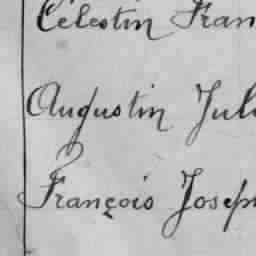 Célestin Fran
Augustin Juli
François Joseph